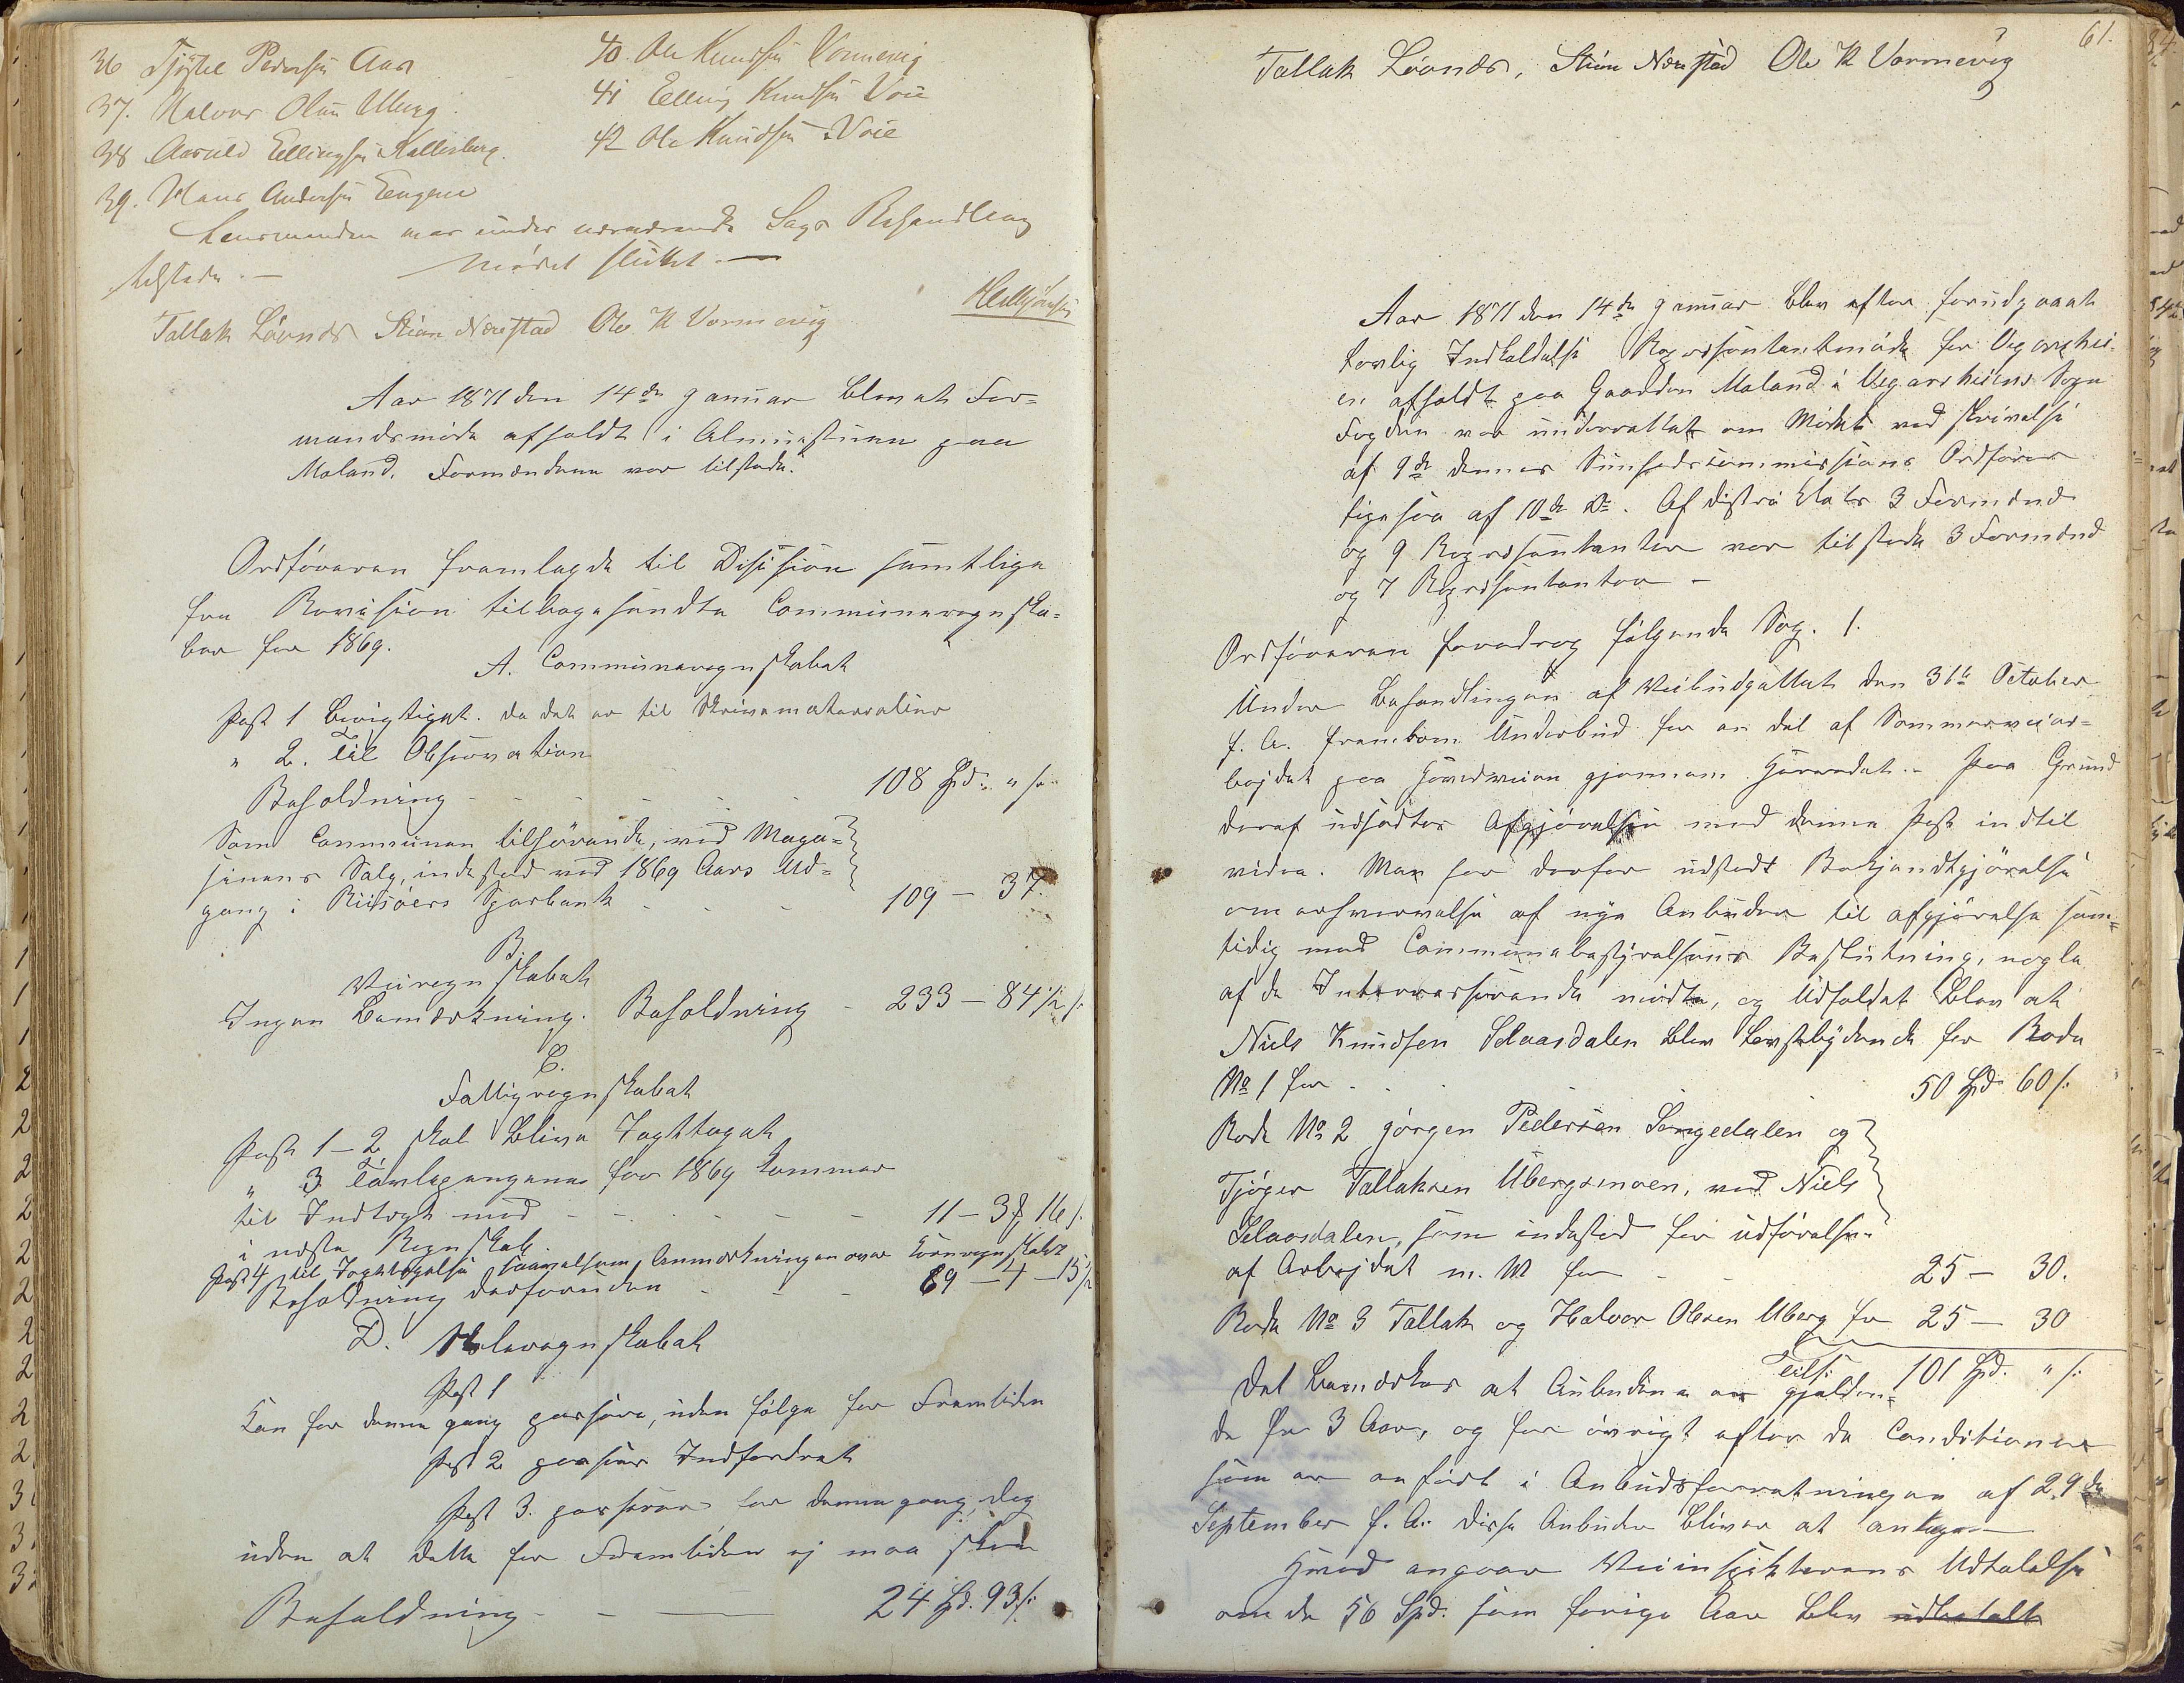 36 Tjøstel Pedersen Aas
37. Halvor Olsen Uberg
38 Aasuld Ellingsen Kallesberg.
39. Hans Andersen Eengene
40. Ole Knudsen Vormevig
41 Elling Knudsen Voie
42 Ole Knudsen Voie
Lensmanden var under nærværende Sags Behandling
tilstede. — Mødet sluttet. —
Tallak Løvnæs Stian Næstad Ole K Vormevig
Aar 1871 den 14de Januar blev et For=
mandsmøde afholdt i Almuestuen paa
Moland. Formændene var tilstede.
Ordføreren fremlagde til Disision samtlige
fra Revision tilbagesendte Communeregnska=
ber for 1869.
A. Communeregnskabet
Post 1 berigtiget. da det er til Skrivematerialier
" 2. til Observation
Beholdning - - - - - 108 Spd. " s.
Som Communen tilhørende, ved Maga=
sinens Salg, indestod ved 1869 Aars Ud=
gang i Riisøers Sparbank - - - 109 — 37.
B.
Veiregnskabet
Ingen Bemærkning. Beholdning - 233 — 84½ s.
C.
Fattigregnskabet
Post 1–2 skal blive Iagttaget
" 3. Løvlepengene for 1869 kommer
til Indtægt med - - - - 11 – 3 16 s.
i næste Regnskab.
Post 4 til Iagttagelse saavelsom Anmærkningen over Kornregnskabet
Beholdning desforuden - - - 69 – 4 – 15½
D. Skoleregnskabet
Post 1
Kan for denne gang passere, uden følge for Fremtiden
Post 2 passere Indfordret
Post 3. passerer for denne gang, dog
uden at dette for Fremtiden ej maa skee
Beholdning - - — 24 Spd. 93 s.
61.
Tallak Løvnæs, Stian Næstad Ole K Vormevig
Aar 1871 den 14de Januar blev efter forudgaaet
lovlig Indkaldelse Repræsentantmøde for Vegarshei=
en afholdt paa Gaarden Moland i Vegarsheiens Sogn
Fogden var underrettet om Mødet ved skrivelse
af 9de dennes Sunhedscommissions Ordfører
ligesaa af 10de Do. Af distriktets 3 Formænd
og 9 Repræsentanter var tilstede 3 Formænd
og 7 Repræsentanter —
Ordføreren foredrog følgende Sag. 1.
Under Behandlingen af Veibudgettet den 31te October
f. A. fremkom Underbud for en del af Sommerveiar=
bejdet paa Hovedveien gjennem Herredet. — Paa Grund
deraf udsattes Afgjørelsen med denne Post indtil
videre. Man har derfor udstedt Bekjendtgjørelse
om erhvervelse af nye Anbuder til afgjørelse sam=
tidig med Communebestyrelsens Beslutning, nogle
af de Interesserende mødte, og Udfaldet blev at
Niels Knudsen Selaasdalen blev Lavstbydende for Rode
No 1 for - - - 50 Spd. 60 s.
Rode No 2 Jørgen Pedersen Songedalen og
Tjøger Tallaksen Ubergsmoen, ved Niels
Selaasdalen, som indestod for udførelsen
af Arbejdet m. M for - - 25 — 30.
Rode No 3 Tallak og Halvor Olsen Uberg for 25 — 30
Tils. 101 Spd. " s.
Det bemærkes at Anbudene er gjælden=
de for 3 Aar, og for øvrigt efter de Conditioner
som er anført i Anbudsforretningen af 29de
September f. A. disse Anbuder bliver at antage —
Hvad angaar Veiinspekteurens Udtalelse
om de 56 Spd. som forige Aar blev udbetalt